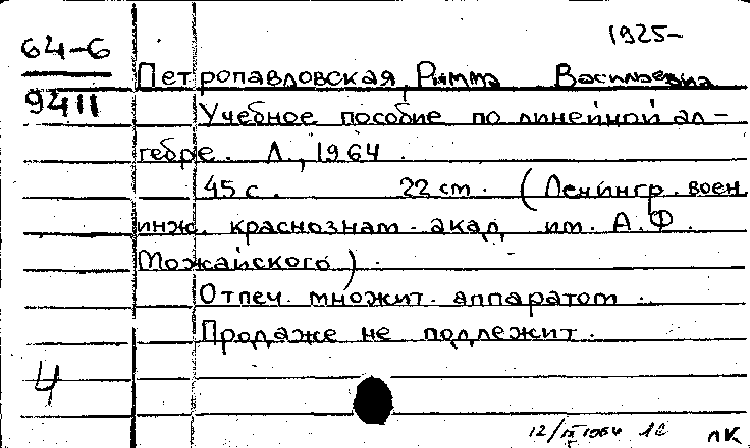 1925-
64-6
Петропавловская, Римма Васильевна
9411
Учебное пособие по линейной ал-
гебре. Л., 1964.
45 с. 22 см. (Ленингр. воен.
инж. краснознам. акад. им. А.Ф.
Можайского).
Отпеч. множит. аппаратом.
Продаже не подлежит.
4
12/IX 1964 1с ЛК